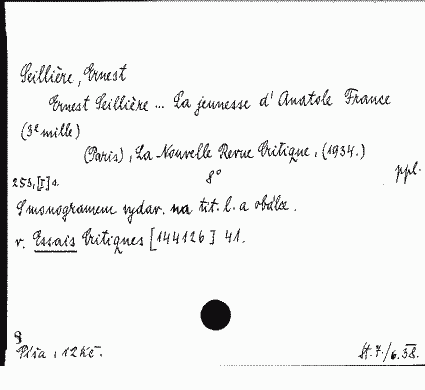 Seillière, Ernest
Ernest Seillière ... La jeunesse d'Anatole France
(3e mille)
(Paris), La Nouvelle Revue Critique, (1934.)
8°
ppl.
253, [I] s.
S monogramem vydav. na tit. l. a obálce.
v. Essais Critiques [144126] 41.
12 Kč.